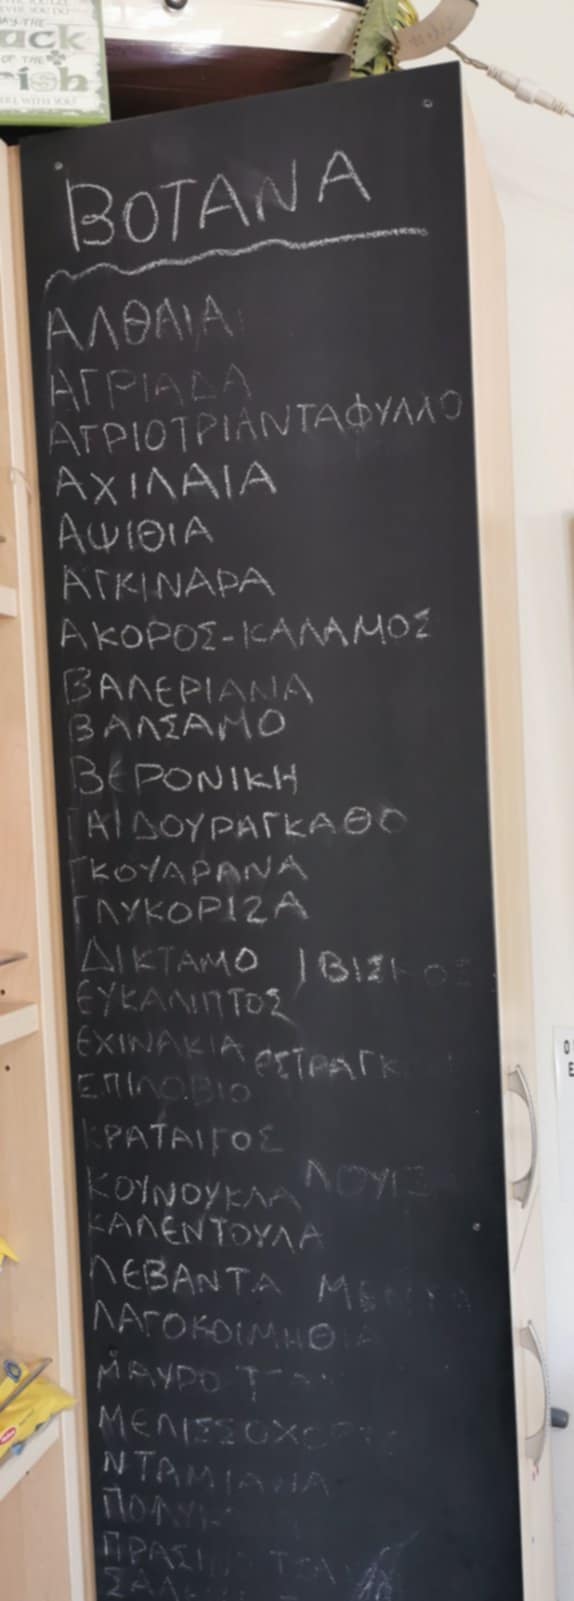 ack
OF THE
rish
ΒΟΤΑΝΑ
ΑΛΘΑΙΑ
ΑΓΡΙΑΔΑ
ΑΓΡΙΟΤΡΙΑΝΤΑΦΥΛΛΟ
ΑΧΙΛΑΙΑ
ΑΨΙΘΙΑ
ΑΓΚΙΝΑΡΑ
ΑΚΟΡΟΣ-ΚΑΛΑΜΟΣ
ΒΑΛΕΡΙΑΝΑ
ΒΑΛΣΑΜΟ
ΒΕΡΟΝΙΚΗ
ΓΑΙΔΟΥΡΑΓΚΑΘΟ
ΓΚΟΥΑΡΑΝΑ
ΓΛΥΚΟΡΙΖΑ
ΔΙΚΤΑΜΟ ΙΒΙΣΚΟΣ
ΕΥΚΑΛΙΠΤΟΣ
ΕΧΙΝΑΚΙΑ ΕΣΤΡΑΓΚ
ΕΠΙΛΟΒΙΟ
ΚΡΑΤΑΙΓΟΣ
ΚΟΥΝΟΥΚΛΑ ΛΟΥΙΖ
ΚΑΛΕΝΤΟΥΛΑ
ΛΕΒΑΝΤΑ
ΛΑΓΟΚΟΙΜΗΘΙΑ
ΜΑΥΡΟ
ΜΕΛΙΣΣΟΧΟΡΤΟ
ΝΤΑΜΙΑΝΑ
ΠΟΛΥΚ
ΠΡΑΣΙ ΤΣΑΙ
ΣΑΛ